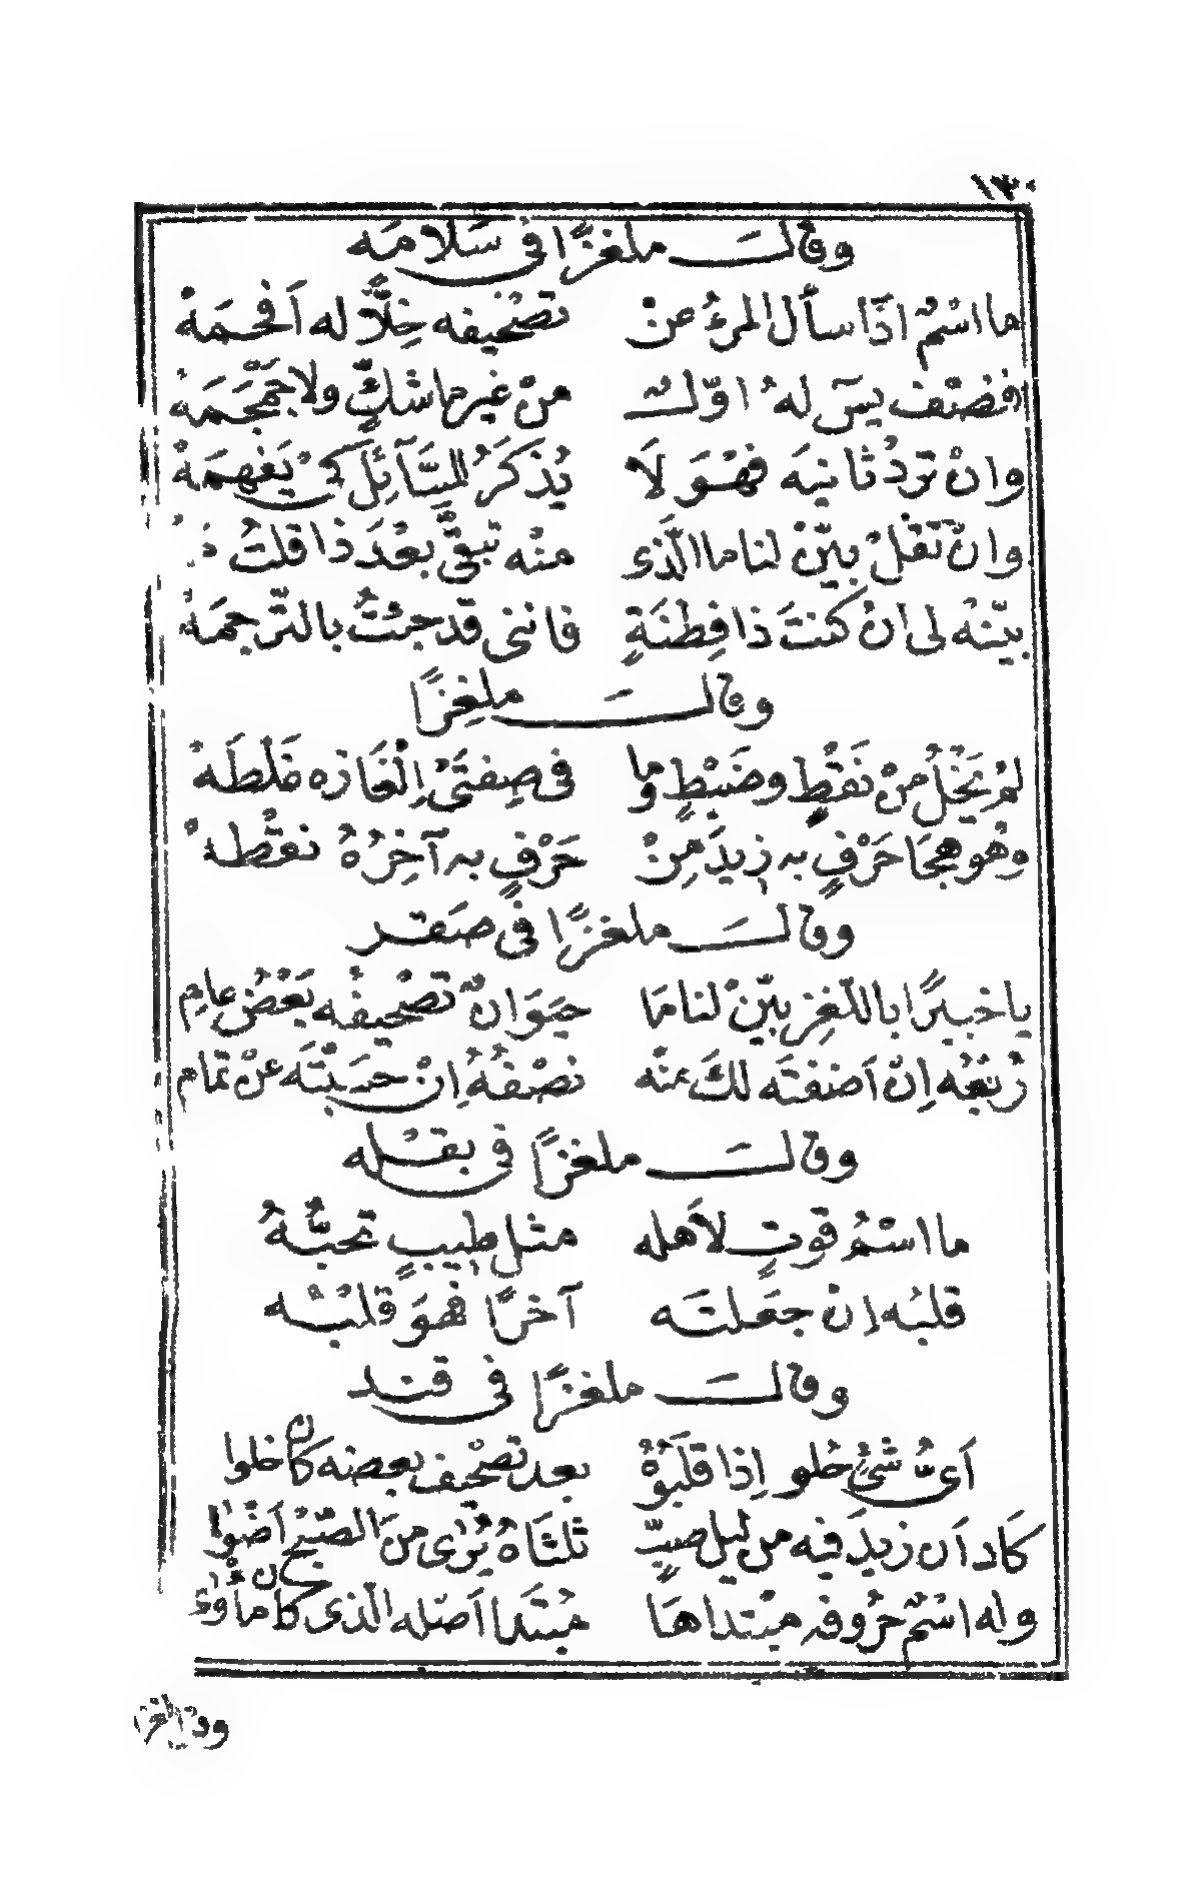 ١٣٠
وقالــ ملغزًا فى سَلامَه
ما اسْمٌ اذَا سأل المرءُ عنْ تصْحيفه خِلًّا له اَفحمَهْ
فنصْف يسٓ لهُ اوّلٌ منْ غير ما شكٍّ ولا جَمْجَمَهْ
وانْ تردْ ثانيَه فهْوَ لَا يُذكَرُ للسَّآئِل كىْ يَفهمَهْ
وانْ تقُلْ بيّنْ لنا ما الَّذى منْه تبقَّى بعْدَ ذا قلتُ
بيّنْهُ لى انْ كنتَ ذا فِطنَةٍ فاننى قد جئْتُ بالترجمَهْ
وقالــَ ملغِزًا
لمْ يَخْلُ منْ نَقْطٍ وضَبْطٍ وما فى صِفتَىْ اِلْغَازه غلْطَهْ
وهْو هجَا حَرْفٍ به زيدَ مِنْ حَرْفٍ به آخِرُهُ نقْطهْ
وقالــَ ملغزًا فى صَقر
يا خبيرًا باللّغِز بيّنْ لنا مَا حيَوانٌ تصْحيفُه بَعْضُ عامِ
رُبْعُه اِنْ اَضفتَه لكَ منْه نصْفُهُ اِنْ حسَبْتَه عنْ تمام
وقالــَ ملغزًا فى بقْله
ما اسْمُ قوتٍ لاَهله مثل طيبٍ تحبُّهُ
قلبُه انْ جعَلتَه آخرًا فهوَ قلبُهْ
وقالــَ ملغزًا فى قند
اَىُّ شىْءٍ حلو اِذا قلَبُوْهُ بعد تصْحيف بعضه كان خلوا
كَاد اَن زيدَ فيه من ليل صبٍّ ثلثَاهُ يُرٰى منَ الصّبْح اَضْوا
وله اسْمٌ حُرُوفه مبْتداهَا مُبْتَدا اَصْله الّذى كان